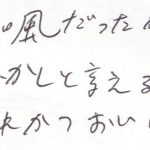 風だった
かしと言える
れかつおい